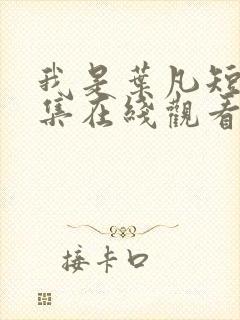 我是葉凡短
集在綫觀看
接卡口